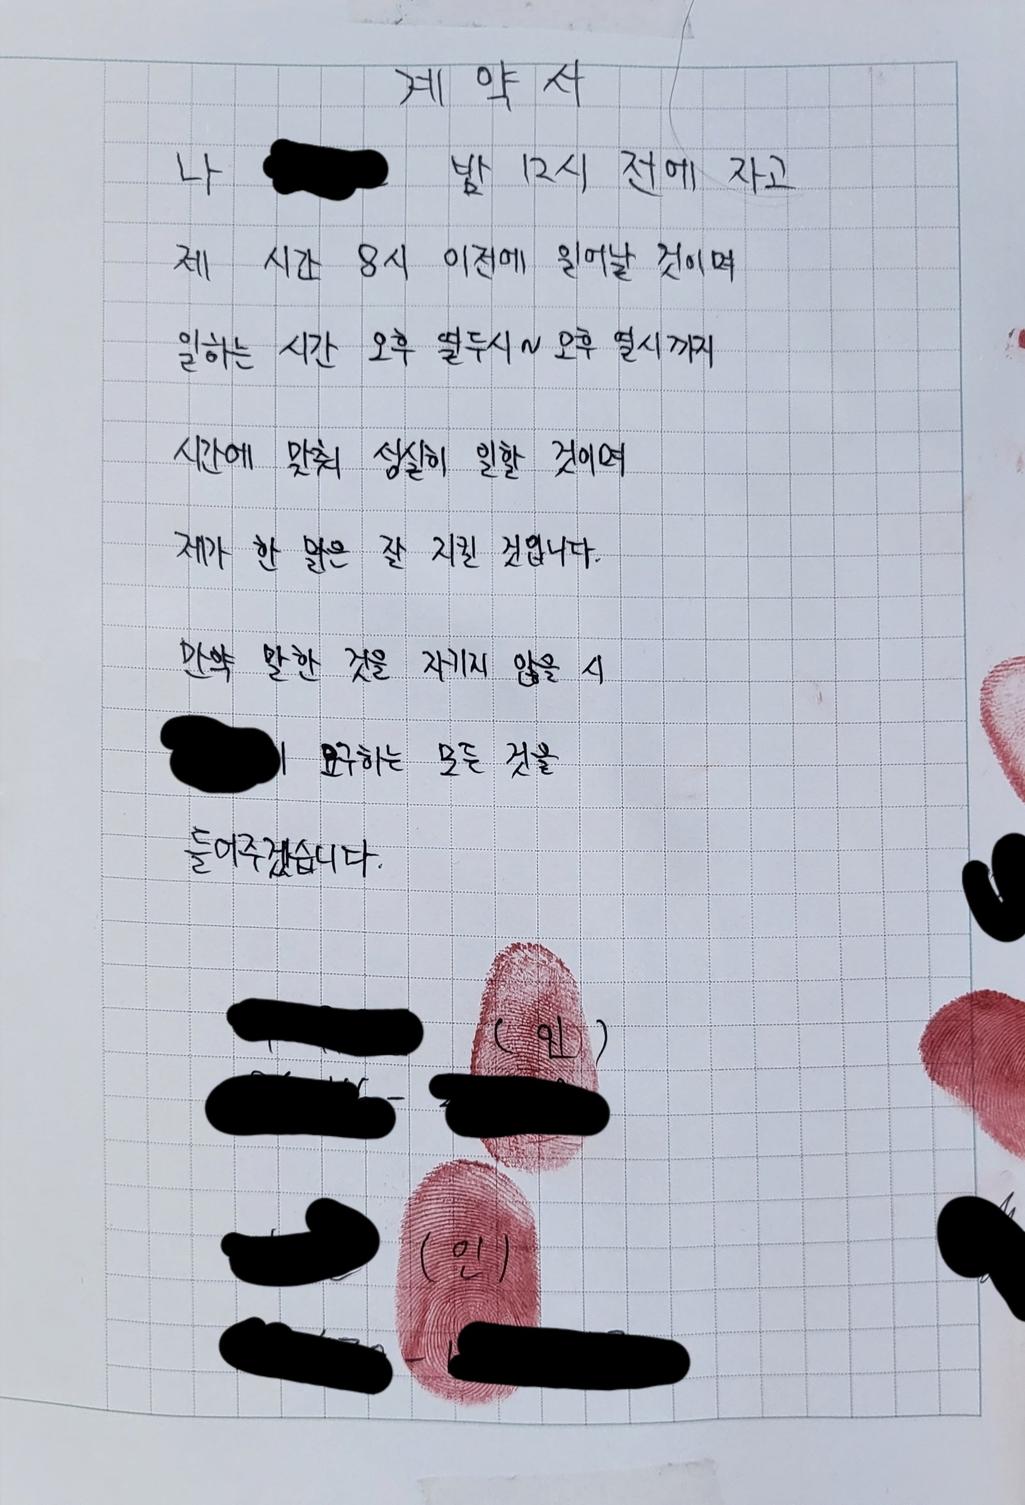 계약서
나 밤 12시 전에 자고
제 시간 8시 이전에 일어날 것이며
일하는 시간 오후 열두시~오후 열시까지
시간에 맞춰 성실히 일할 것이며
제가 한 말은 잘 지킬 것입니다.
만약 말한 것을 지키지 않을 시
요구하는 모든 것을
들어주겠습니다.
(인)
(인)